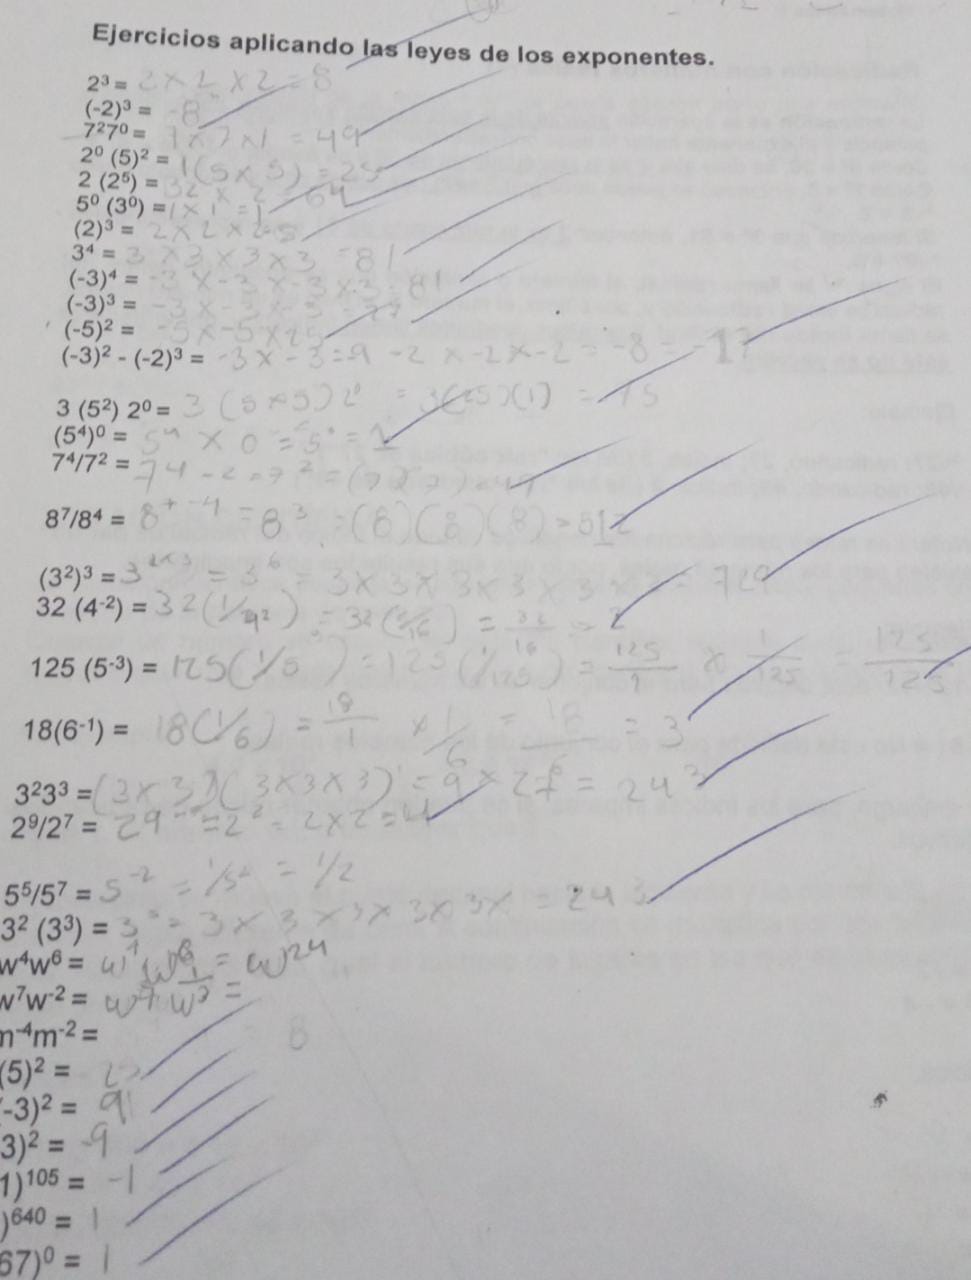 Ejercicios aplicando las leyes de los exponentes.
2³ = 2 x 2 x 2 = 8
(-2)³ = -8
7²7⁰ = 7 x 7 x 1 = 49
2⁰ (5)² = 1(5 x 5) = 25
2 (2⁵) = 32 x 2 = 64
5⁰ (3⁰) = 1 x 1 = 1
(2)³ = 2 x 2 x 2 = 8
3⁴ = 3 x 3 x 3 x 3 = 81
(-3)⁴ = -3 x -3 x -3 x 81
(-3)³ = -3 x -3 x -3 = 27
(-5)² = -5 x -5 x 25
(-3)² - (-2)³ = -3 x -3 = 9 - 2 x -2 x -2 = -8 = 17
3 (5²) 2⁰ = 3 (5 x 5) 2⁰ = 3(25)(1) = 75
(5⁴)⁰ = 5⁴ x 0 = 5⁰ = 1
7⁴/7² = 7 4 - 2 = 7² = (7)(7) = 49
8⁷/8⁴ = 8 -4 = 8³ = (8)(8)(8) = 512
(3²)³ = 3²ˣ³ = 3⁶ = 3 x 3 x 3 x 3 x 3 x 3 = 729
32 (4⁻²) = 32(1/4²) = 32(1/16) = 32/16 = 2
125 (5⁻³) = 125(1/5³) = 125(1/125) = 125/1 x 1/125 = 125/125
18(6⁻¹) = 18(1/6) = 18/1 x 1/6 = 18/6 = 3
3²3³ = (3 x 3)(3 x 3 x 3) = 9 x 27 = 243
2⁹/2⁷ = 29 = 2² = 2 x 2 = 4
5⁵/5⁷ = 5⁻² = 1/5² = 1/2
3² (3³) = 3⁵ = 3 x 3 x 3 x 3 x 3 x = 243
w⁴w⁶ = w⁴ w⁶ = w²⁴
w⁷w⁻² = w⁷ 1/w² =
m⁻⁴m⁻² =
8
(5)² = 25
-3)² = 9
3)² = -9
1)¹⁰⁵ = -1
)⁶⁴⁰ = 1
67)⁰ = 1